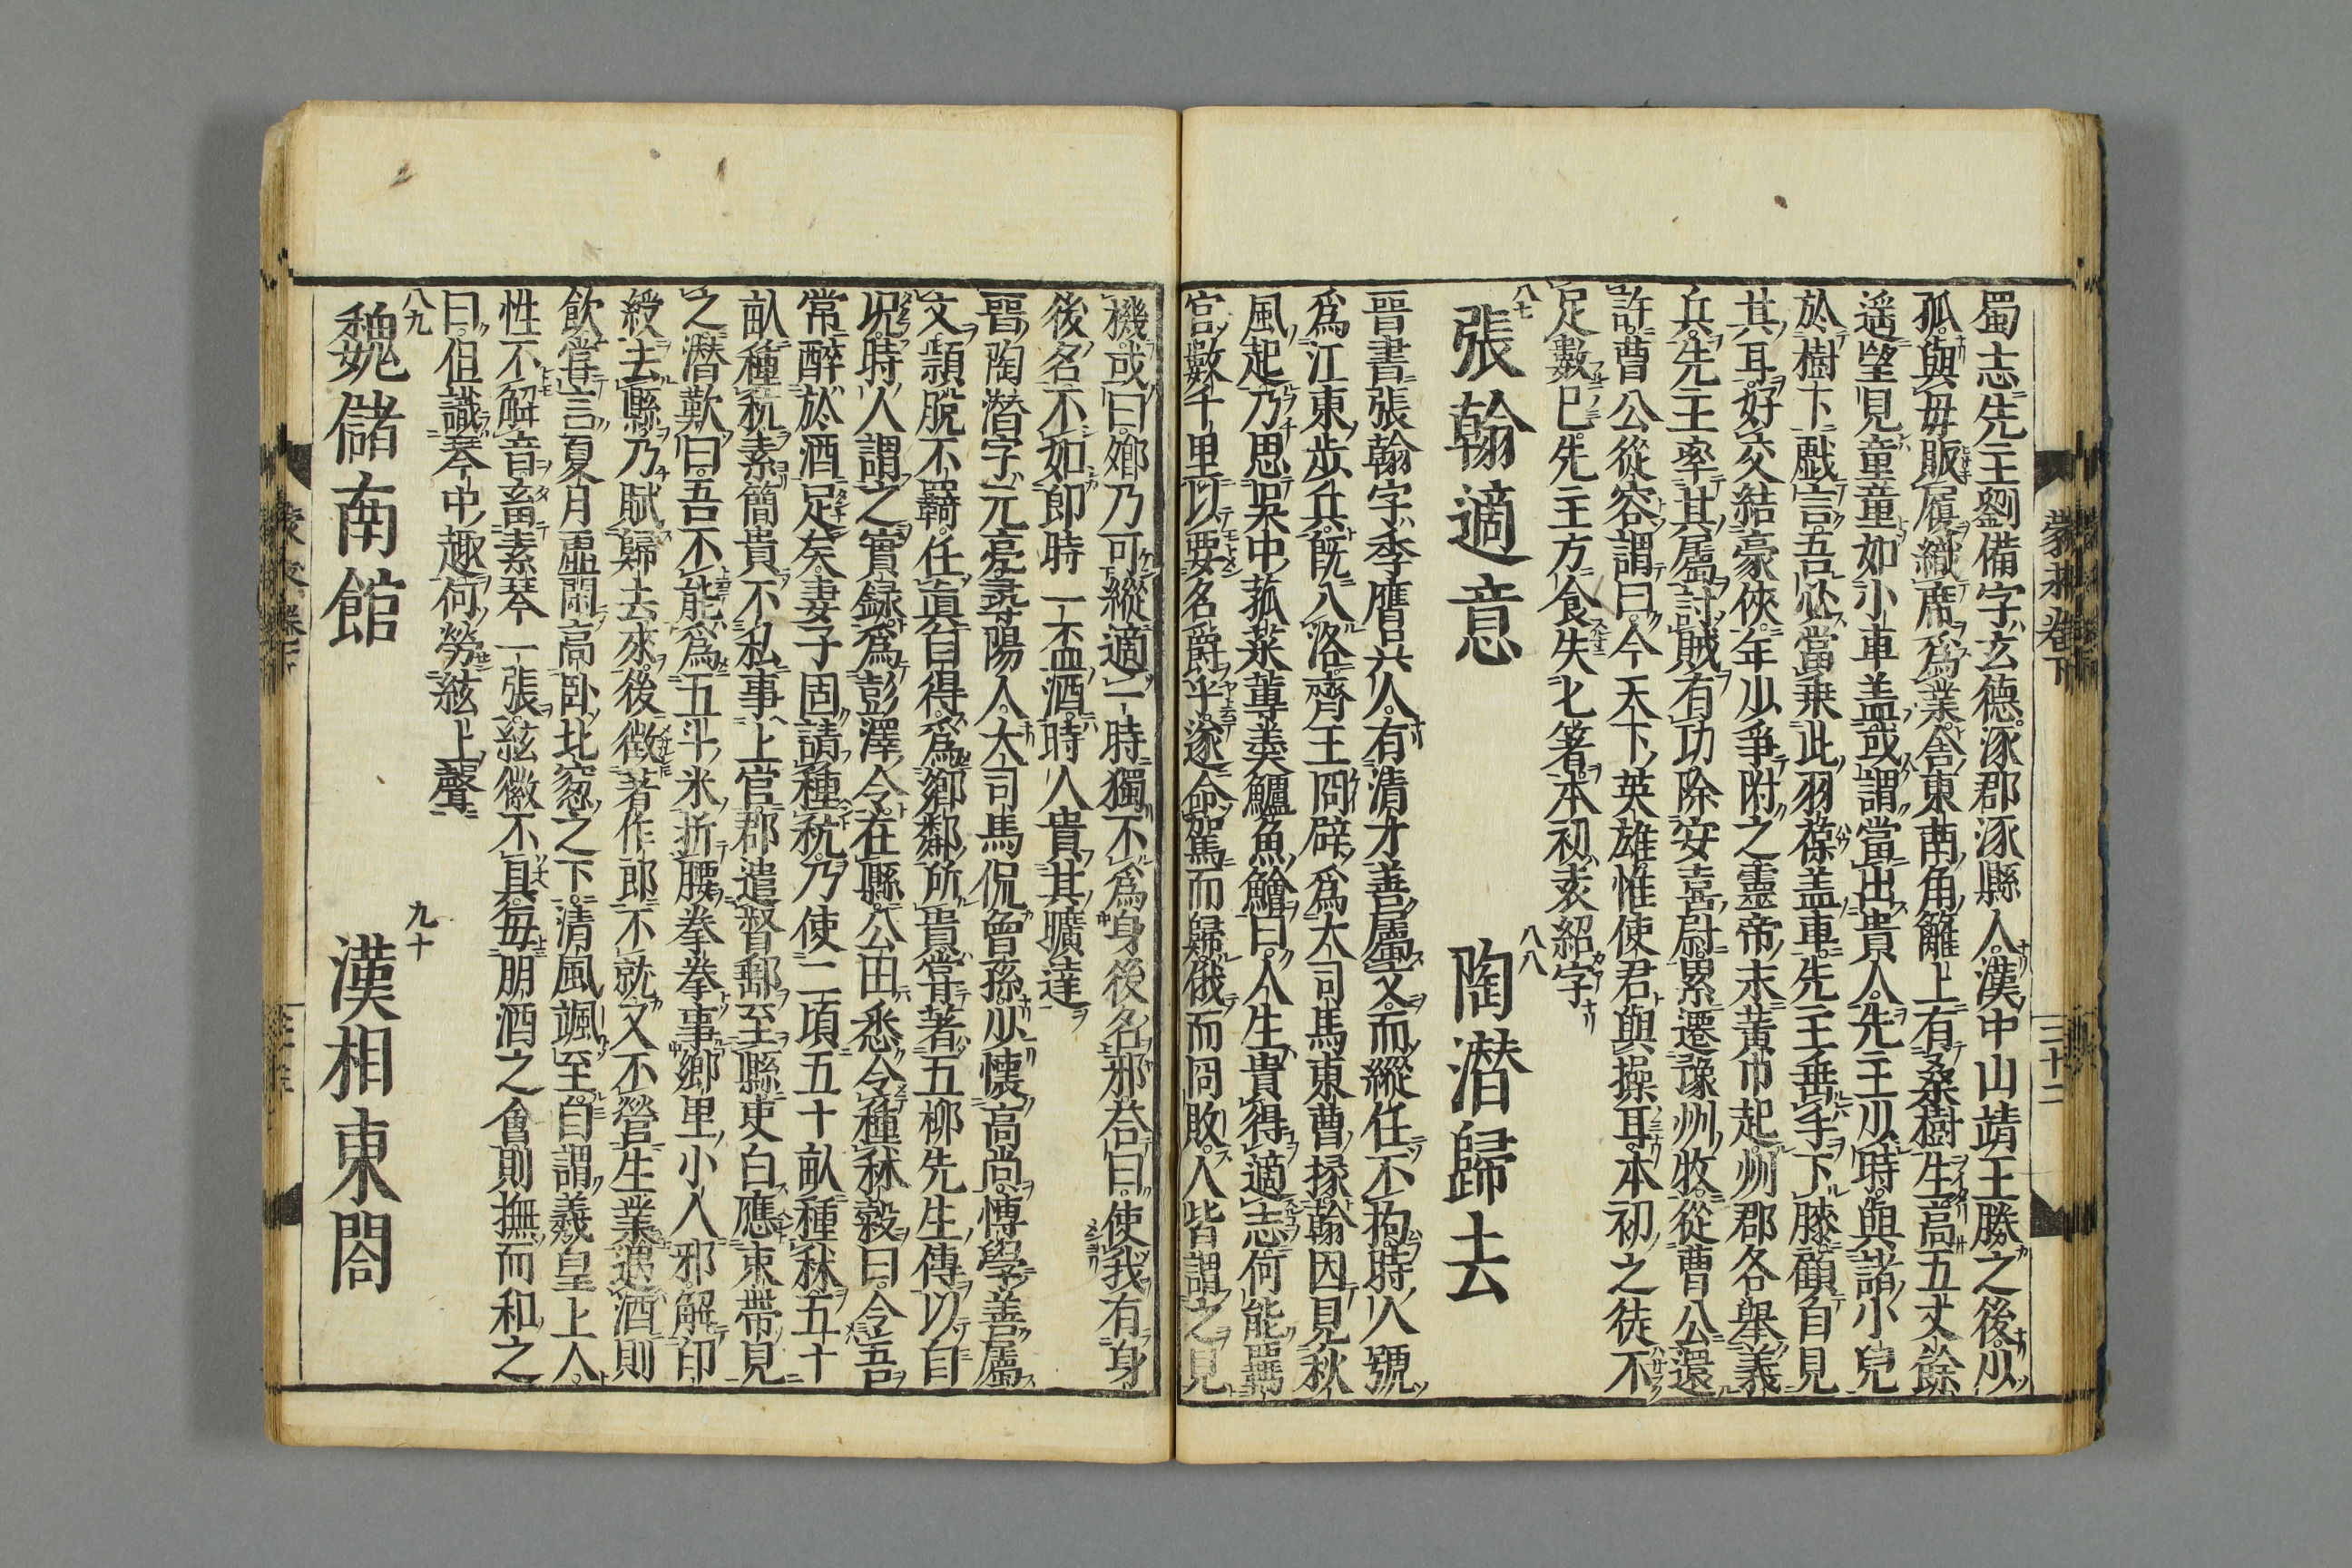 蜀志先主劉備字玄德涿郡涿縣人漢中山靖王勝之後少
孤與母販履織席爲業舎東南角籬上有桑樹生高五丈餘
遥望見童童如小車盖或謂當出貴人先主少時與諸小兒
於樹下戯言吾必當乗此羽葆盖車先主垂手下膝顧自見
其耳好交結豪俠年少爭附之靈帝末黃巾起州郡各舉義
兵先主率其屬討賊有功除安喜尉累遷豫州牧從曹公還
許曹公從容謂曰今天下英雄惟使君與操耳本初之徒不
足數已先主方食失匕箸本初袁紹字
八七
張翰適意
八八
陶潜歸去
晋書張翰字季鷹呉人有清才善屬文而縱任不拘時人號
爲江東歩兵旣入洛齊王冏辟爲大司馬東曹掾翰因見秋
風起乃思呉中菰菜蓴羮鱸魚鱠曰人生貴得適志何能羈
宦數千里以要名爵乎遂命駕而歸俄而冏敗人皆謂之見
機或曰卿乃可縱適一時獨不爲身後名邪荅曰使我有身
後名不如即時一盃酒時人貴其曠達
晋陶潜字元亮尋陽人大司馬侃曾孫少懷高尚博學善屬
文頴脫不羈任眞自得爲鄉鄰所貴嘗著五柳先生傳以自
况時人謂之實録爲彭澤令在縣公田悉令種秫穀曰令吾
常醉於酒足矣妻子固請種秔乃使二頃五十畝種秫五十
畝種秔素簡貴不私事上官郡遣督郵至縣吏白應束帶見
之潜歎曰吾不能爲五斗米折腰拳拳事鄉里小人邪解印
綬去縣乃賦歸去來後徴著作郎不就又不營生業遇酒則
飲嘗言夏月虛閑高卧北窓之下清風颯至自謂羲皇上人
性不解音畜素琴一張絃徽不具毎朋酒之會則撫而和之
曰但識琴中趣何勞絃上聲
八九
魏儲南館
九十
漢相東閤
蒙求卷下
三十二